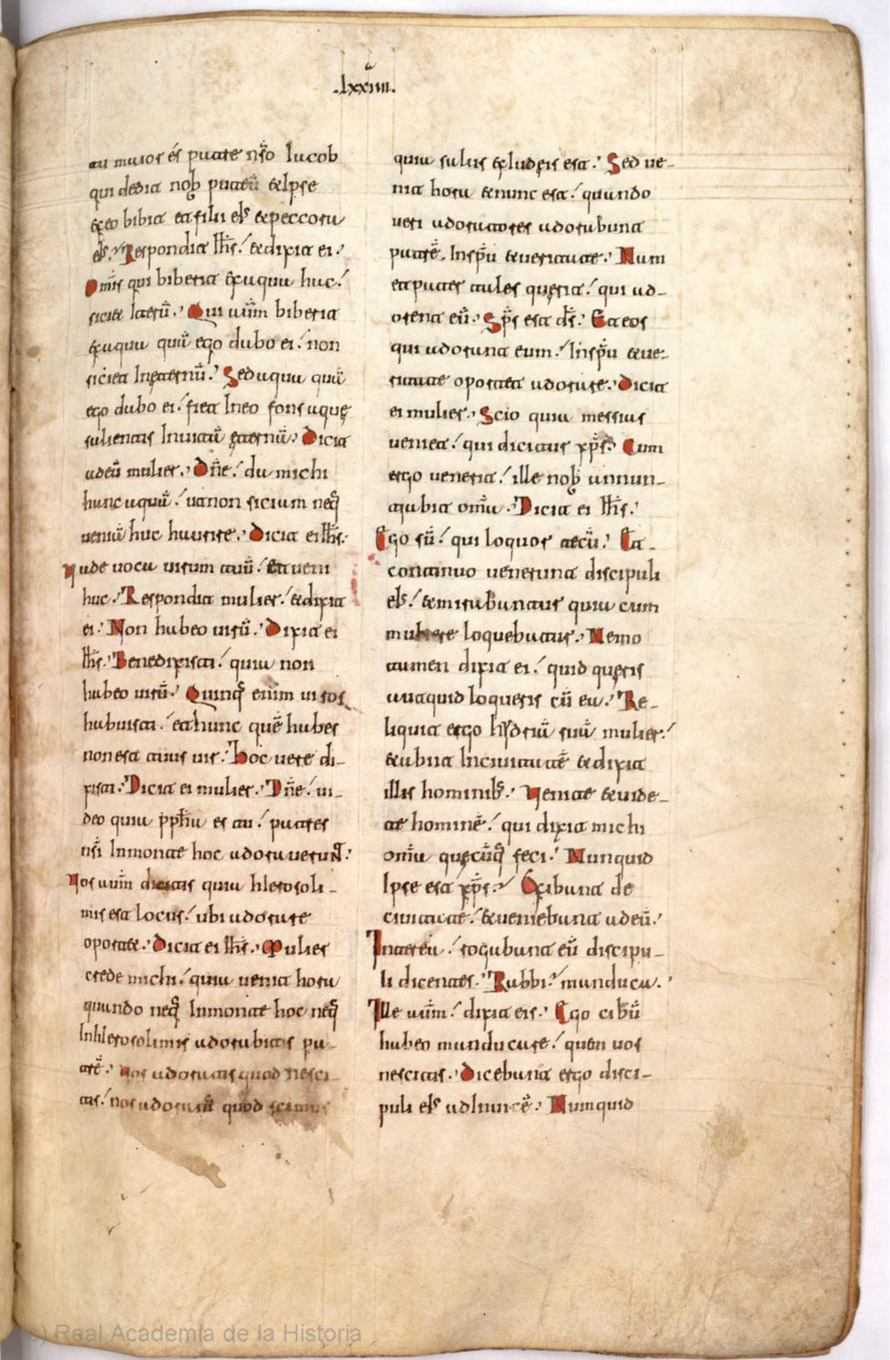 .lxxiiii.
tu maior es patre nr̄o Iacob
qui dedit nob puteū & ipse
ex eo bibit et filii ei' & peccora
ei'. Respondit ih̄s. & dixit ei.
Om̄is qui biberit ex aqua huc.
sitiet iterū. Qui aūm biberit
ex aqua quā ego dabo ei. non
siciet In eternū. Sed aqua quā
ego dabo ei. fiet In eo fons aque
salientis In uitā eternā. Dicit
ad eū mulier. Dn̄e. da michi
hunc aquā. ut non siciam neq̄
ueniā huc haurire. Dicit ei ih̄s.
Uade uoca uirum tuū. et ueni
huc. Respondit mulier. & dixit
ei. Non habeo uirū. Dixit ei
ih̄s. Benedixisti. quia non
habeo uirū. Quinq̄ enim uiros
habuisti. et hunc quē habes
non est tuus uir. Hoc uere di-
xisti. Dicit ei mulier. Dn̄e. ui-
deo quia pp̄ha es tu. patres
nr̄i In monte hoc adorauerunt.
Uos aūm dicitis quia hIerosoli-
mis est locus. ubi adorare
oportet. Dicit ei ih̄s. Mulier
crede michi. quia uenit hora
quando neq̄ In monte hoc neq̄
In hIerosolimis adorabitis pa-
trē. uos adoratis quod nesci-
tis. nos adoram̄ quod scimus
quia salus ex Iudeis est. Sed ue-
nit hora & nunc est. quando
ueri adoratores adorabunt
patrē. In sp̄u & ueritate. Nam
et pater tales querit. qui ad-
orent eū. Sp̄s est ds̄. Et eos
qui adorant eum. In sp̄u & ue-
ritate oportet adorare. Dicit
ei mulier. Scio quia messias
ueniet. qui dicitur xp̄s. Cum
ergo uenerit. ille nob annun-
tiabit om̄a. Dicit ei ih̄s.
Ego sū. qui loquor tecū. Et
continuo uenerunt discipuli
ei'. & mirabantur quia cum
muliere loquebatur. Nemo
tamen dixit ei. quid queris
aut quid loqueris cū ea. Re-
liquit ergo hydriā suā mulier.
& abiit In ciuitatē & dixit
illis hominib'. Uenite & uide-
te hominē. qui dixit michi
om̄a quecūq̄ feci. Nunquid
Ipse est xp̄s. Exibant de
ciuitate. & ueniebant ad eū.
Interea. rogabant eū discipu-
li dicentes. Rabbi. manduca.
Ille aūm. dixit eis. Ego cibū
habeo manducare. quem uos
nescitis. Dicebant ergo disci-
puli ei' ad Inuicē. Numquid
Real Academia de la Historia